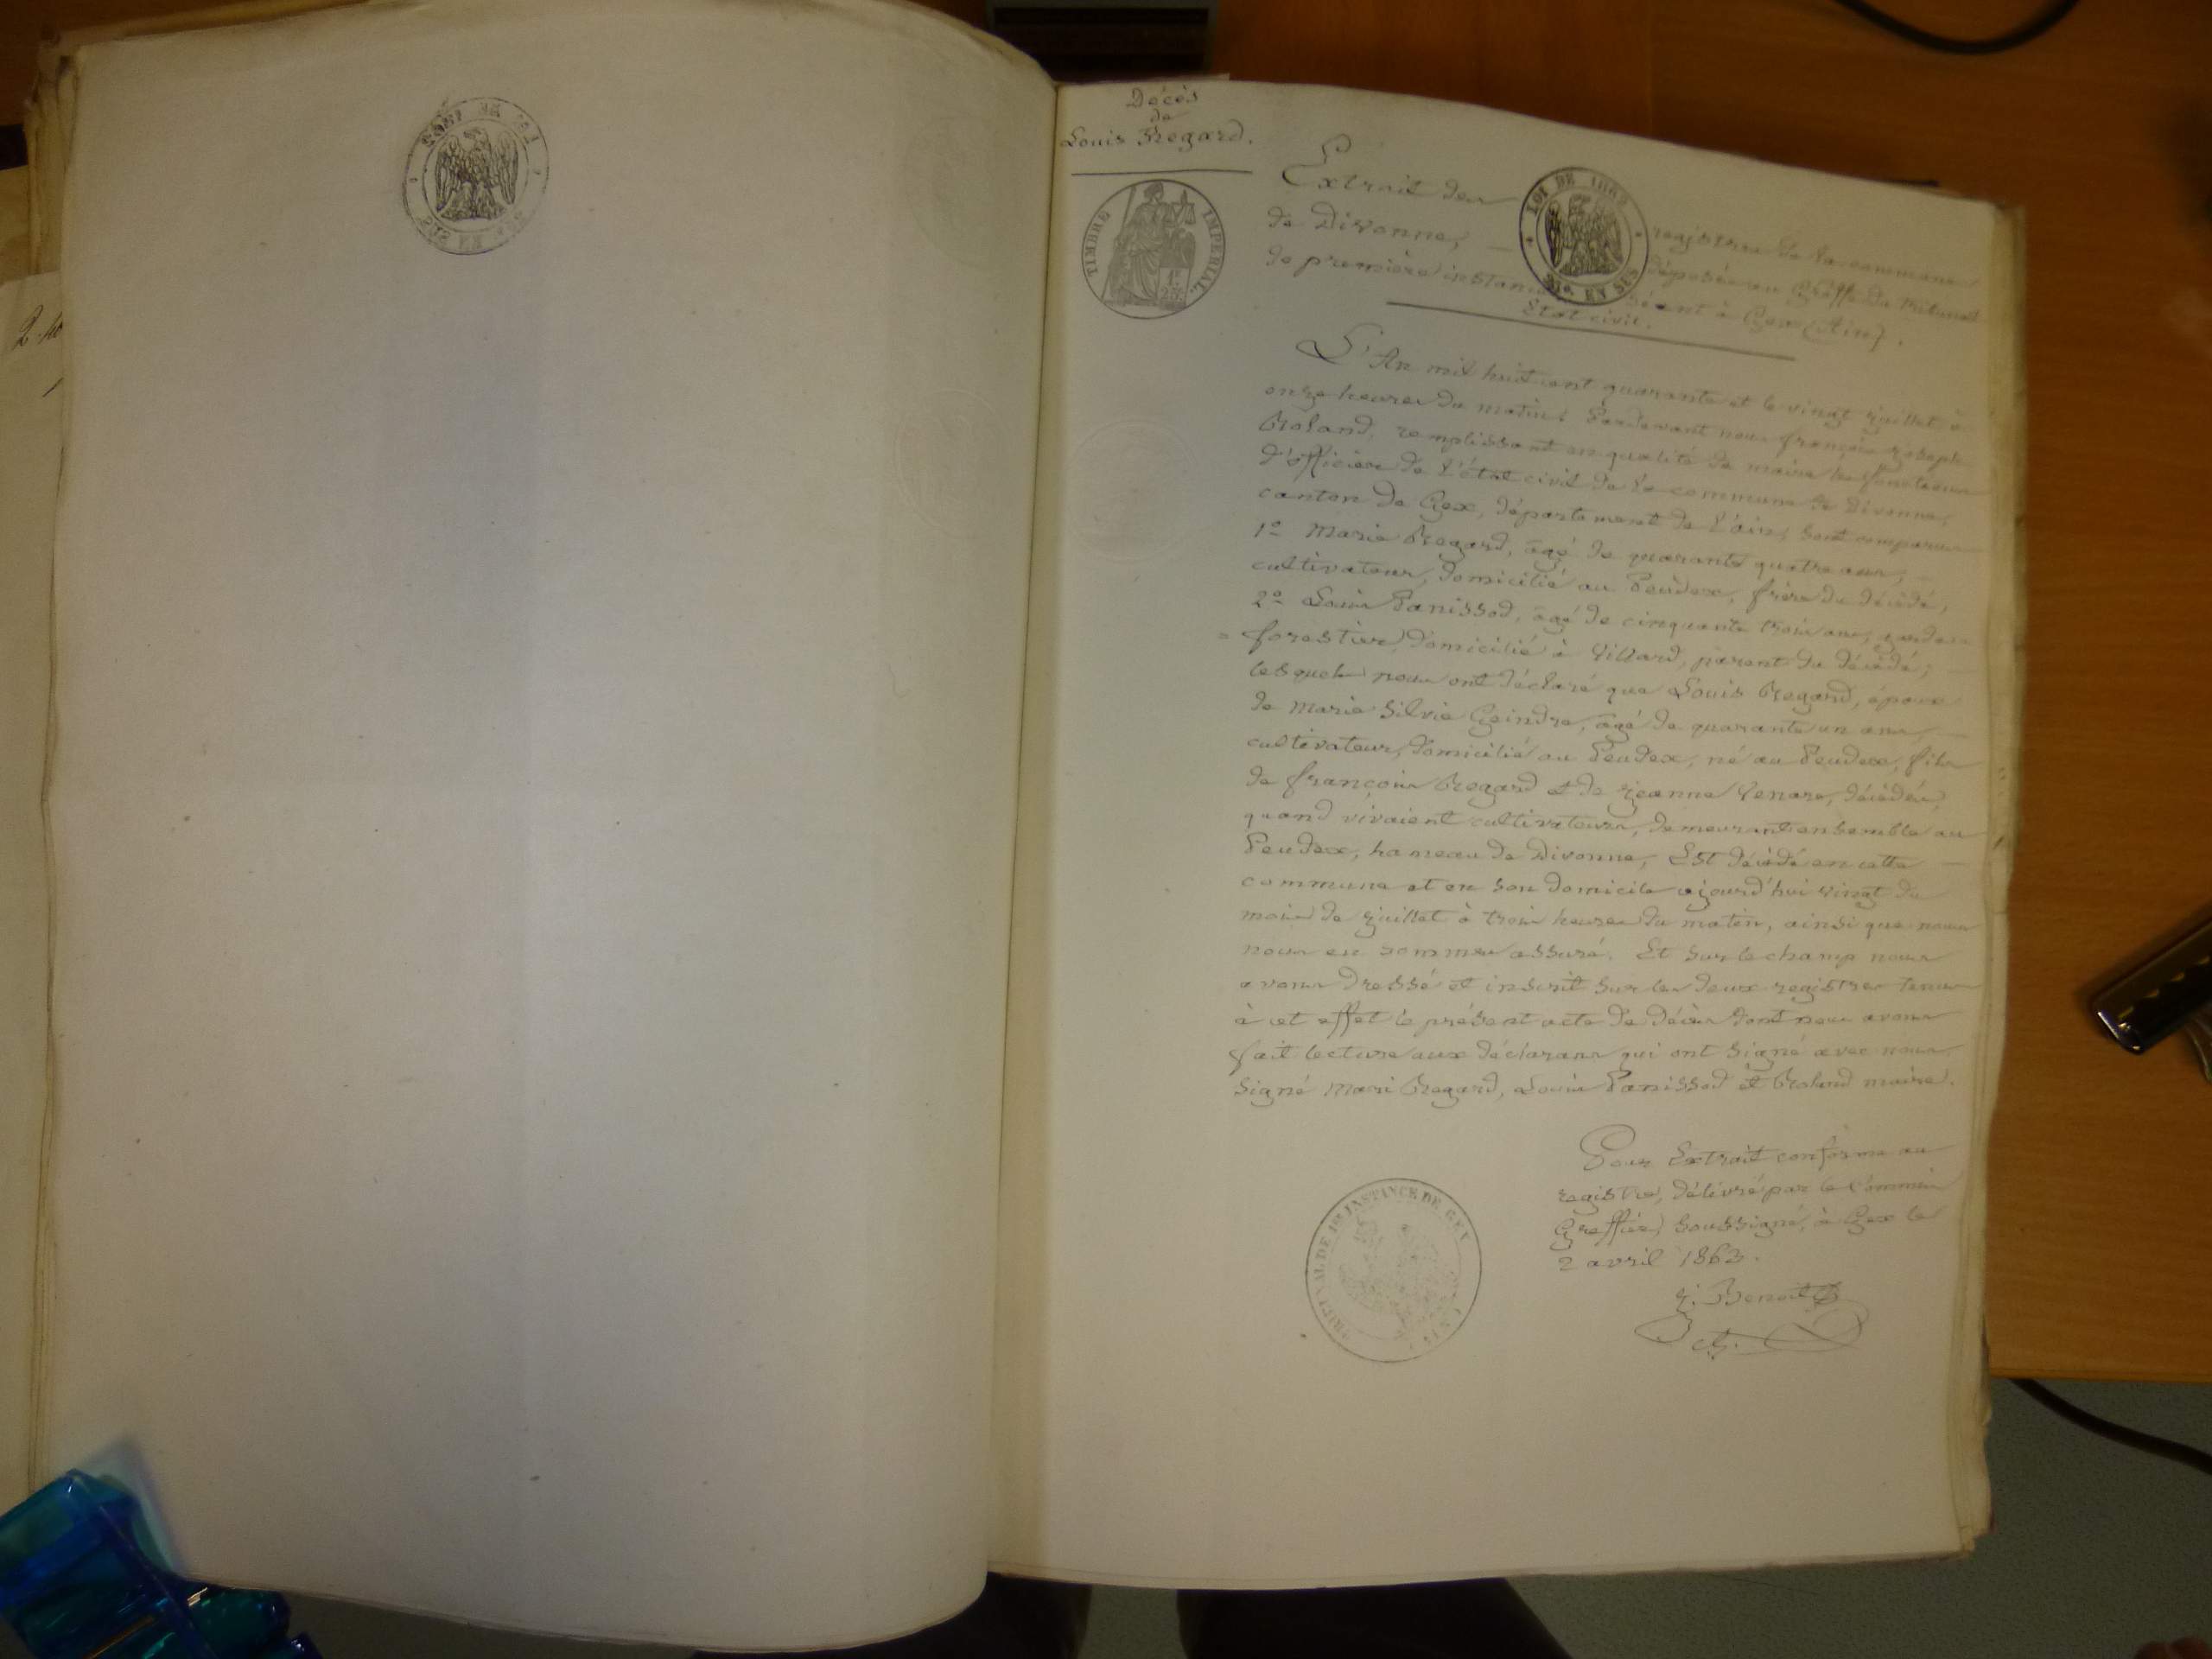 Décès
de
Louis Regard.
TIMBRE IMPERIAL
LOI DE 1862
EN SUS
Extrait des registres de la commune
de Divonne, déposés au Greffe du tribunal
de première instance séant à Gex (Ain).
Etat civil.
L'An mil huit cent quarante et le vingt juillet à
onze heures du matin; Pardevant nous françois joseph
Roland, remplissant en qualité de maire les fonctions
d'officier de l'état civil de la commune de Divonne,
canton de Gex, département de l'ain, sont comparus
1º Marie Regard, agé de quarante quatre ans,
cultivateur, domicilié au Peudex, frère du décédé,
2º Louis Panissod, agé de cinquante trois ans, garde
= forestier, domicilié à Villard, parent du décédé;
lesquels nous ont déclaré que Louis Regard, époux
de Marie Silvie Geindre, agé de quarante un ans,
cultivateur, domicilié au Peudex, né au Peudex, fils
de françois Regard et de jeanne Venare, décédés,
quand vivaient cultivateurs, demeurant ensemble au
Peudex, hameau de Divonne, Est décédé en cette
commune et en son domicile ajourd'hui vingt du
mois de juillet à trois heures du matin, ainsi que nous
nous en sommes assuré. Et sur le champ nous
avons dressé et inscrit sur les deux registres tenus
à cet effet le présent acte de décès dont nous avons
fait lecture aux déclarans qui ont signé avec nous
signé Mari Regard, Louis Panissod et Roland maire.
Pour Extrait conforme au
registre, délivré par le Commis
Greffier soussigné, à Gex le
2 avril 1863.
j. Benoit
TRIBUNAL DE 1RE INSTANCE DE GEX
2